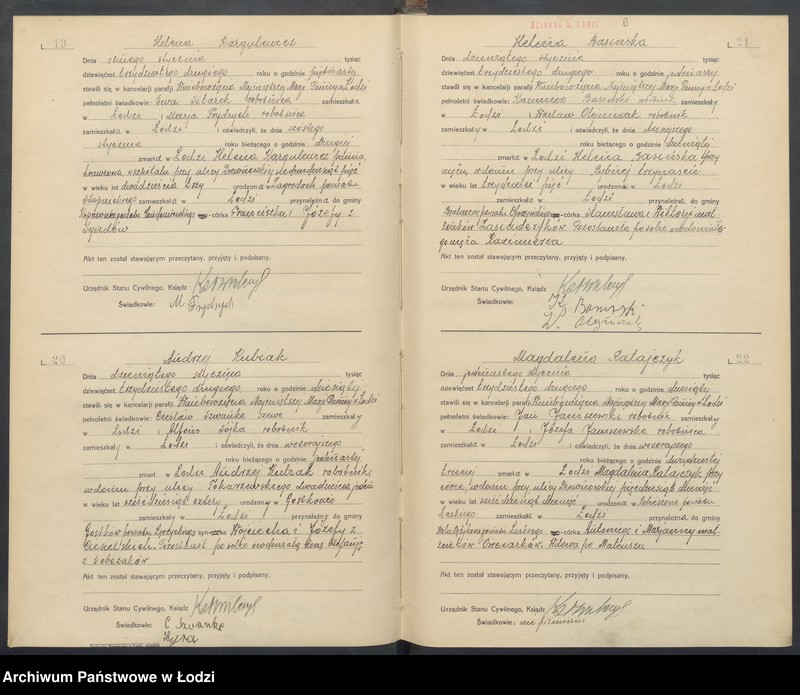 L. 19
Helena Kargulewicz
Dnia ósmego stycznia tysiąc
dziewięćset trzydziestego drugiego roku o godzinie piętnastej
stawili się w kancelarji parafji Wniebowzięcia Najświętszej Marji Panny w Łodzi
pełnoletni świadkowie: Ewa robotnica zamieszkała
w Łodzi i Marja Frydrych robotnica
zamieszkała w Łodzi i oświadczyli, że dnia szóstego
stycznia roku bieżącego o godzinie drugiej
zmarła w Łodzi Helena Kargulewicz panna,
krawcowa, w szpitalu przy ulicy siedemdziesiąt pięć
w wieku lat dwadzieścia trzy urodzona w Zagrodach powiatu
zamieszkała w Łodzi przynależna do gminy
córka Franciszka i Józefy z
Akt ten został stawającym przeczytany, przyjęty i podpisany.
Urzędnik Stanu Cywilnego, Ksiądz
Świadkowie: M Frydrych
L. 20
Andrzej Kubiak
Dnia dziewiątego stycznia tysiąc
dziewięćset trzydziestego drugiego roku o godzinie dziesiątej
stawili się w kancelarji parafji Wniebowzięcia Najświętszej Marji Panny w Łodzi
pełnoletni świadkowie: Czesław Szwanke zamieszkały
w Łodzi i Alfons Sójka robotnik
zamieszkały w Łodzi i oświadczyli, że dnia wczorajszego
roku bieżącego o godzinie jedenastej
zmarł w Łodzi Andrzej Kubiak robotnik,
w domu przy ulicy Tokarzewskiego dwadzieścia jeden
w wieku lat sześćdziesiąt cztery urodzony w Gostkowie
zamieszkały w Łodzi przynależny do gminy
Gostków powiatu Łęczyckiego syn Wojciecha i Józefy z
Pozostawił po sobie owdowiałą żonę
z
Akt ten został stawającym przeczytany, przyjęty i podpisany.
Urzędnik Stanu Cywilnego, Ksiądz
Świadkowie: C Szwanke
6
L. 21
Helena Basińska
Dnia dziewiątego stycznia tysiąc
dziewięćset trzydziestego drugiego roku o godzinie
stawili się w kancelarji parafji Wniebowzięcia Najświętszej Marji Panny w Łodzi
pełnoletni świadkowie: Kazimierz Basiński robotnik zamieszkały
w Łodzi i Wacław robotnik
zamieszkały w Łodzi i oświadczyli, że dnia dzisiejszego
roku bieżącego o godzinie dziewiątej
zmarła w Łodzi Helena Basińska przy
mężu, w domu przy ulicy trzynaście
w wieku lat trzydzieści pięć urodzona w Łodzi
zamieszkała w Łodzi przynależna do gminy
powiatu Opoczyńskiego córka Stanisława i Wiktorji mał-
żonków Pozostawiła po sobie owdowiałe-
go męża Kazimierza
Akt ten został stawającym przeczytany, przyjęty i podpisany.
Urzędnik Stanu Cywilnego, Ksiądz
Świadkowie:
L. 22
Magdalena Ratajczyk
Dnia jedenastego stycznia tysiąc
dziewięćset trzydziestego drugiego roku o godzinie dziesiątej
stawili się w kancelarji parafji Wniebowzięcia Najświętszej Marji Panny w Łodzi
pełnoletni świadkowie: Jan Janiszewski robotnik zamieszkały
w Łodzi i Józefa Janiszewska robotnica
zamieszkała w Łodzi i oświadczyli, że dnia wczorajszego
roku bieżącego o godzinie dwudziestej
trzeciej zmarła w Łodzi Magdalena Ratajczyk przy
córce, w domu przy ulicy pięćdziesiąt dziewięć
w wieku lat sześćdziesiąt dziewięć urodzona w powiatu
Łaskiego zamieszkała w Łodzi przynależna do gminy
powiatu Łaskiego córka i Marjanny mał-
żonków Wdowa po Mateuszu
Akt ten został stawającym przeczytany, przyjęty i podpisany.
Urzędnik Stanu Cywilnego, Ksiądz
Świadkowie: nie piśmienni
Archiwum Państwowe w Łodzi